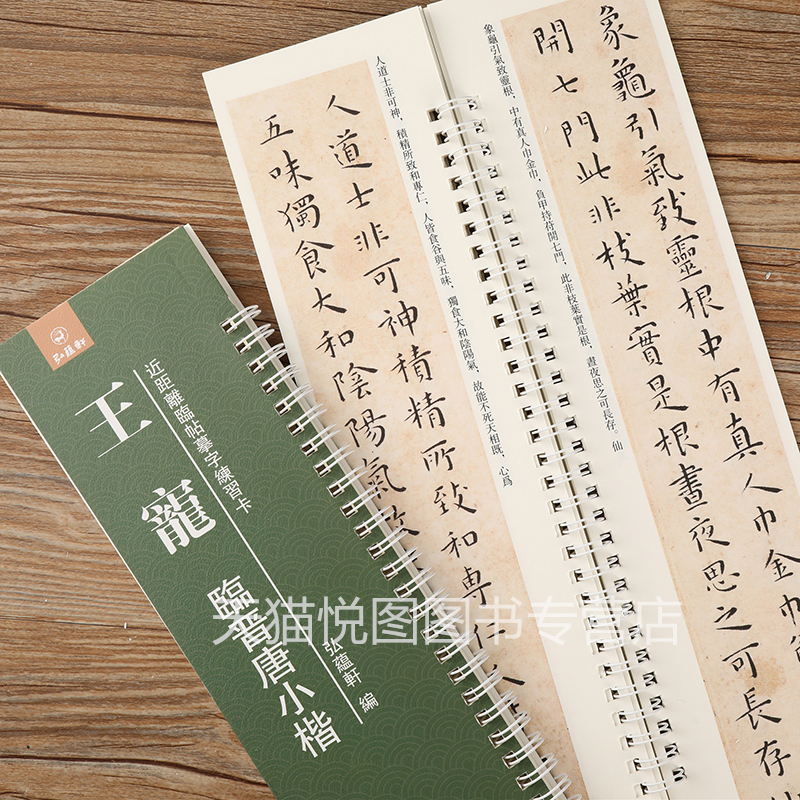 弘蘊軒
王寵
臨晋唐小楷
近距離臨帖摹字練習卡
弘蘊軒 編
象龜引氣致靈根中有真人巾金巾
開七門此非枝葉實是根晝夜思之可長存
象龜引氣致靈根，中有真人巾金巾，負甲持苻開七門，此非枝葉實是根，晝夜思之可長存。仙
人道士非可神積精所致和専仁人
五味獨食大和陰陽氣故
人道士非可神，積精所致和專仁，人皆食谷與五味，獨食大和陰陽氣，故能不死天相既，心爲
天猫悦图图书专营店